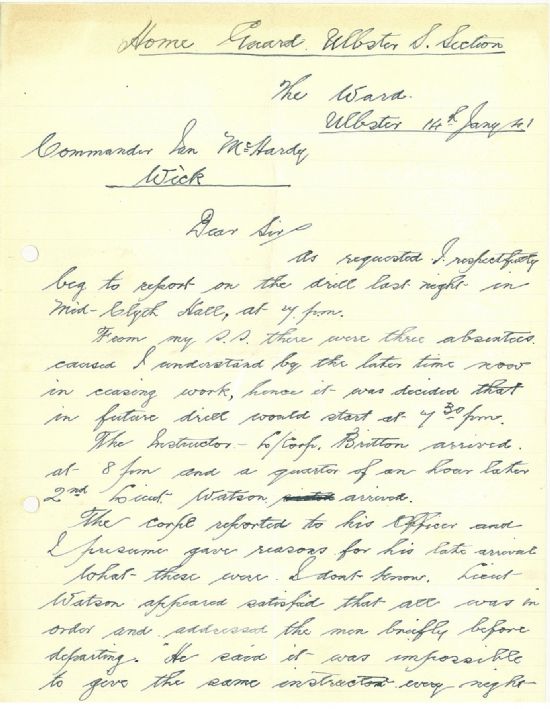 Home Guard Ulbster S. Section
The Ward.
Ulbster 14th Jany 41
Commander Ian McHardy
Wick
Dear Sir
As requested I respectfully
beg to report on the drill last night in
Mid-Clyth Hall, at 7 pm.
From my S.S. there were three absentees
caused I understand by the later time now
in ceasing work, hence it was decided that
in future drill would start at 7 30 pm.
The Instructor - L/Corp. Britton arrived
at 8 pm and a quarter of an hour later
2nd Lieut Watson arrived.
The corpl reported to his Officer and
I presume gave reasons for his late arrival
What these were I dont know. Lieut
Watson appeared satisfied that all was in
order and addressed the men briefly before
departing. "He said it was impossible
to give the same instruction every night